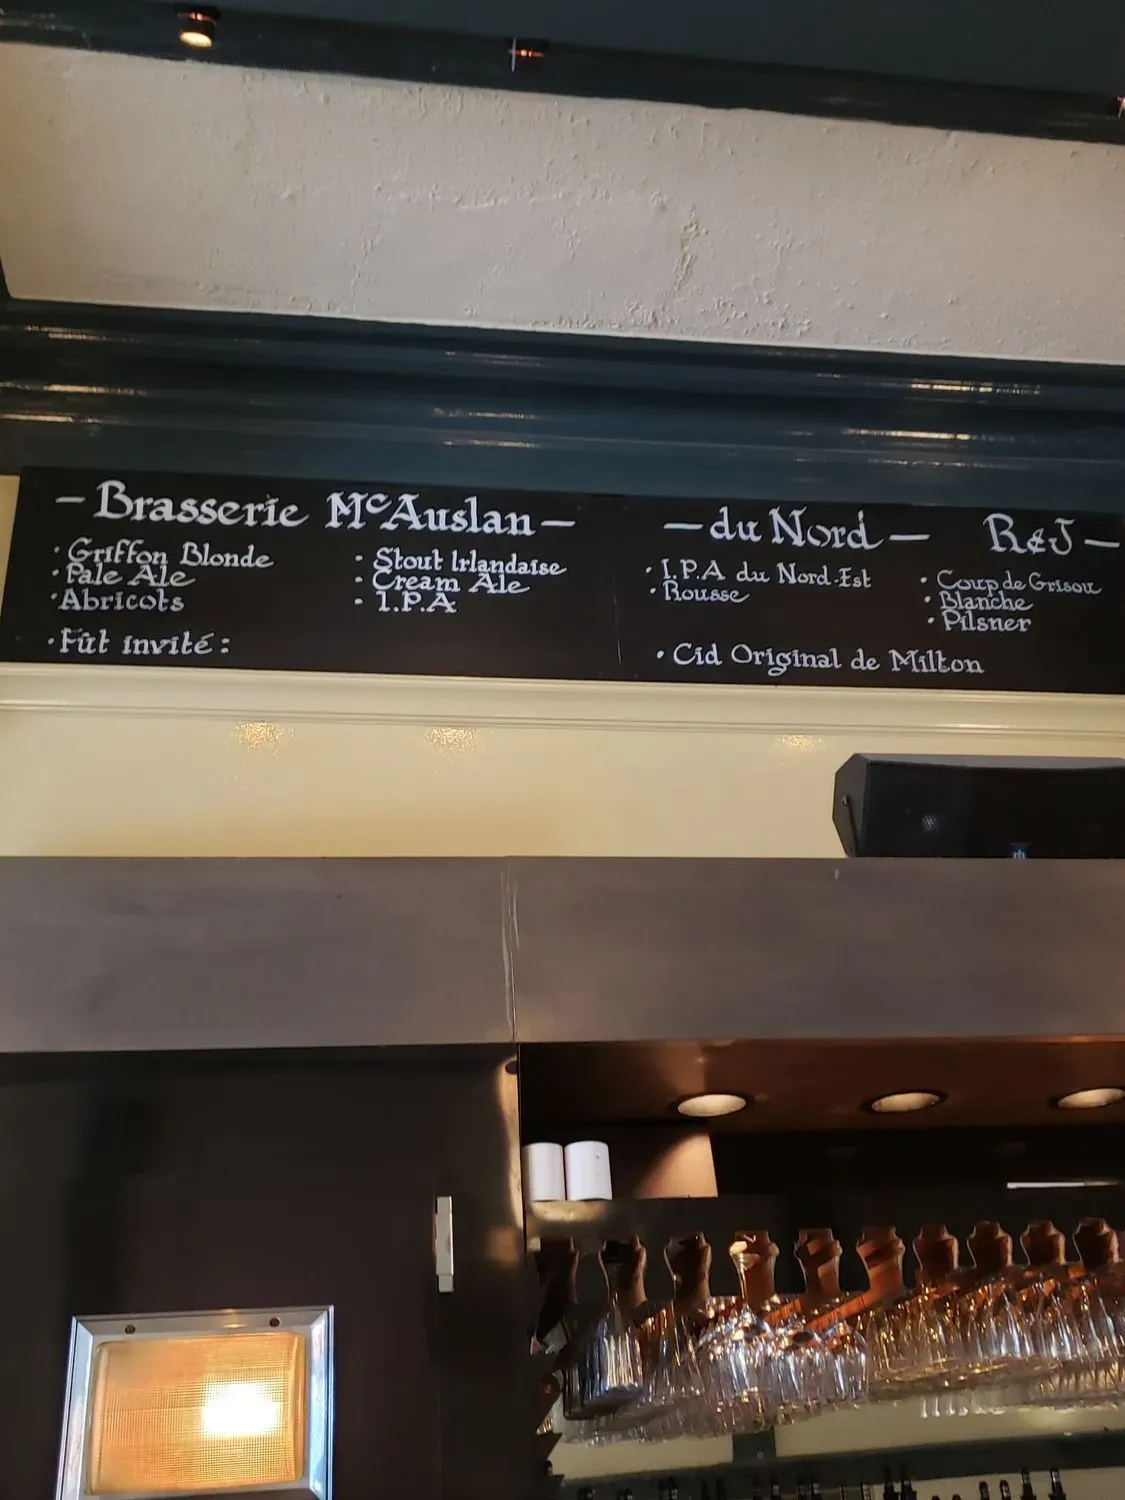 — Brasserie McAuslan —
· Griffon Blonde
· Pale Ale
· Abricots
· Fût invité :
· Stout Irlandaise
· Cream Ale
· I.P.A
— du Nord —
· I.P.A du Nord-Est
· Rousse
R&J —
· Coup de Grisou
· Blanche
· Pilsner
· Cid Original de Milton